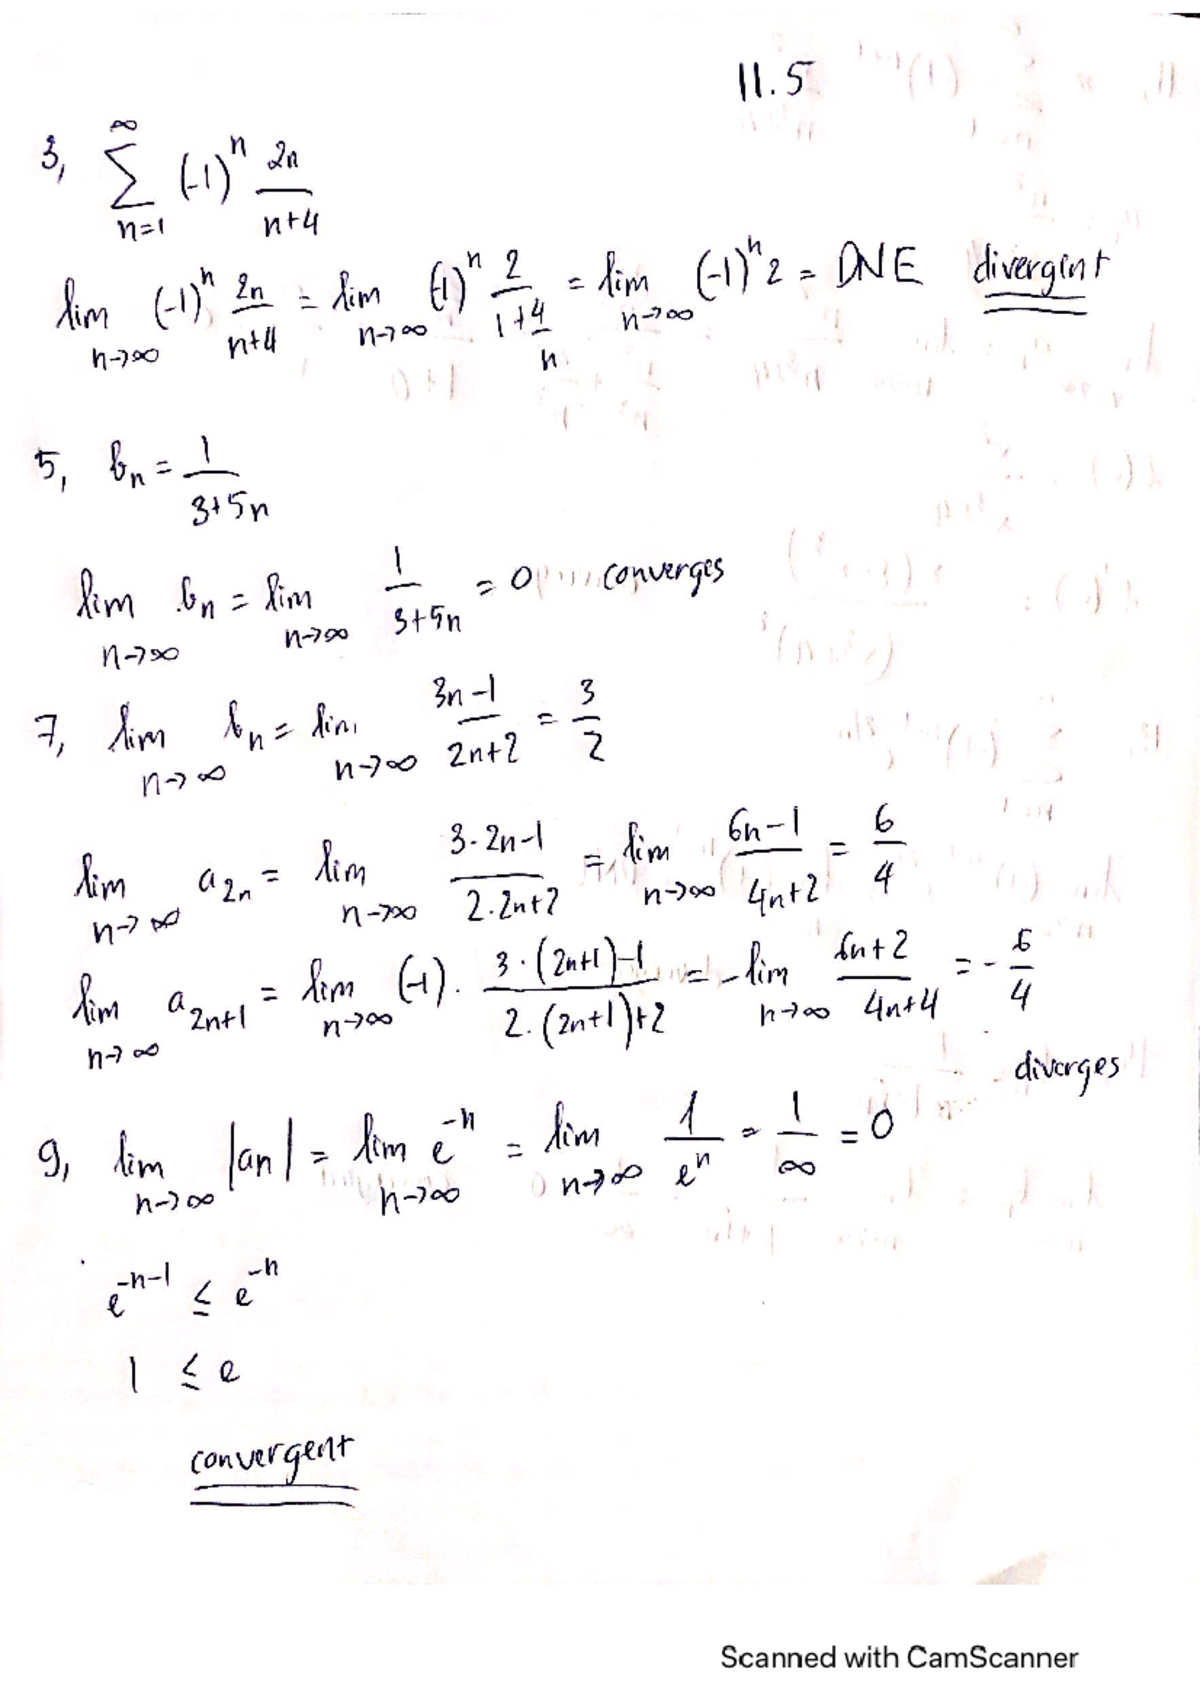 11.5
3, ∞ ∑ n=1 (-1)^n 2n/(n+4)
lim n→∞ (-1)^n 2n/(n+4) = lim n→∞ (-1)^n 2/(1+4/n) = lim n→∞ (-1)^n 2 = DNE divergent
5, bn = 1/(3+5n)
lim n→∞ bn = lim n→∞ 1/(3+5n) = 0 converges
7, lim n→∞ bn = lim n→∞ (3n-1)/(2n+2) = 3/2
lim n→∞ a2n = lim n→∞ (3·2n-1)/(2·2n+2) = lim n→∞ (6n-1)/(4n+2) = 6/4
lim n→∞ a2n+1 = lim n→∞ (-1)· (3·(2n+1)-1)/(2·(2n+1)+2) = -lim n→∞ (6n+2)/(4n+4) = -6/4
diverges
9, lim n→∞ |an| = lim n→∞ e^-n = lim n→∞ 1/e^n = 1/∞ = 0
e^-n-1 ≤ e^-n
1 ≤ e
convergent
Scanned with CamScanner